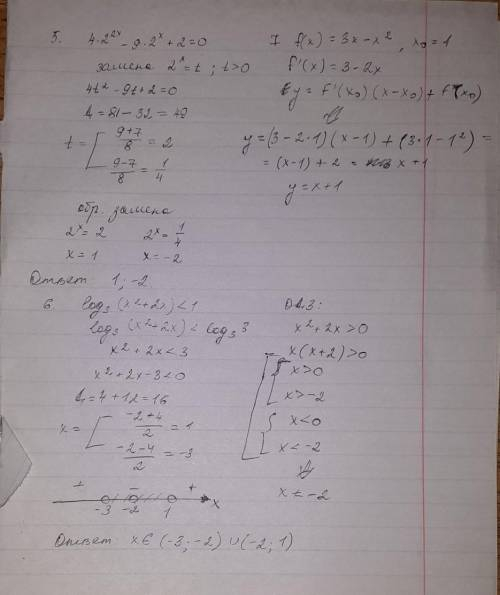 5. 4·2^{2x} - 9·2^x + 2 = 0
замена 2^x = t ; t > 0
4t² - 9t + 2 = 0
D = 81 - 32 = 49
t = [ (9+7)/8 = 2
(9-7)/8 = 1/4
обр. замена
2^x = 2 2^x = 1/4
x = 1 x = -2
Ответ 1; -2
7 f(x) = 3x - x², x₀ = 1
f'(x) = 3 - 2x
y = f'(x₀)(x - x₀) + f(x₀)
⇓
y = (3 - 2·1)(x - 1) + (3·1 - 1²) =
= (x-1) + 2 = x + 1
y = x + 1
6. log₃ (x² + 2x) < 1
log₃ (x² + 2x) < log₃ 3
x² + 2x < 3
x² + 2x - 3 < 0
D = 4 + 12 = 16
x = [ (-2+4)/2 = 1
(-2-4)/2 = -3
+ - +
-3 -2 1 x
ОДЗ:
x² + 2x > 0
x(x + 2) > 0
x > 0
x > -2
x < 0
x < -2
⇓
x ≠ -2
Ответ: x ∈ (-3; -2) ∪ (-2; 1)